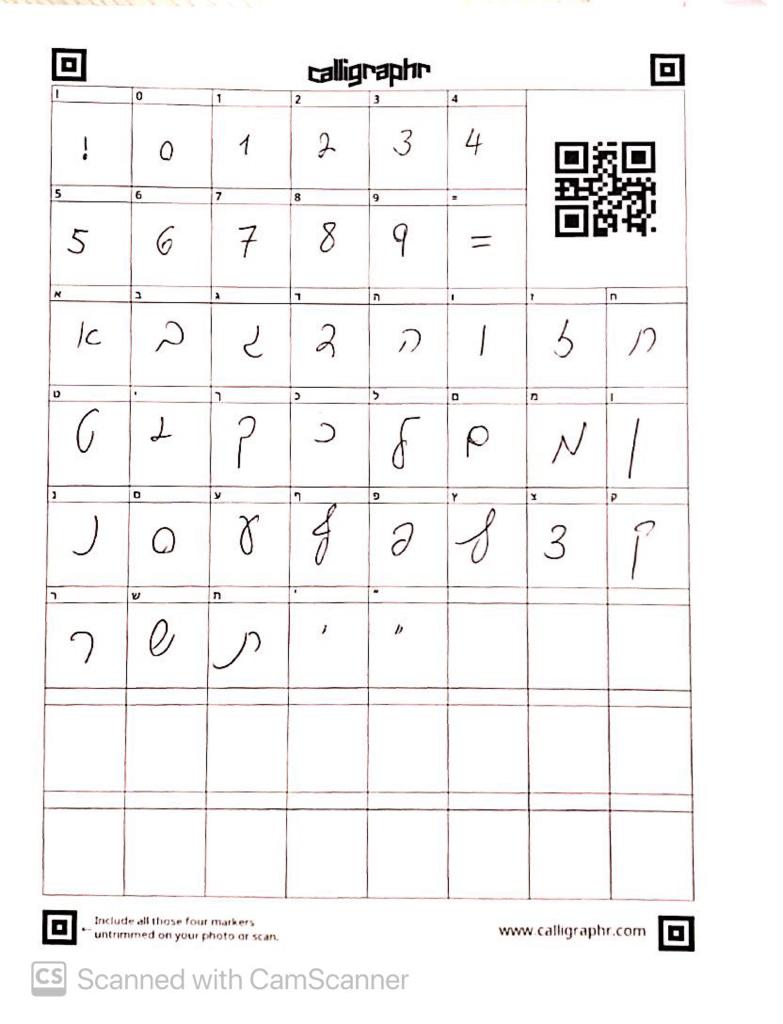 calligraphr
! 0 1 2 3 4
! 0 1 2 3 4
5 6 7 8 9 =
5 6 7 8 9 =
א ב ג ד ה ו ז ח
א ב ג ד ה ו ז ח
ט י ך כ ל ם מ ן
ט ך כ ל ם מ ן
נ ס ע ף פ ץ צ ק
נ ס ע ף פ ץ צ ק
ר ש ת ' "
ר ש ת ' "
Include all those four markers
← untrimmed on your photo or scan.
www.calligraphr.com
CS Scanned with CamScanner